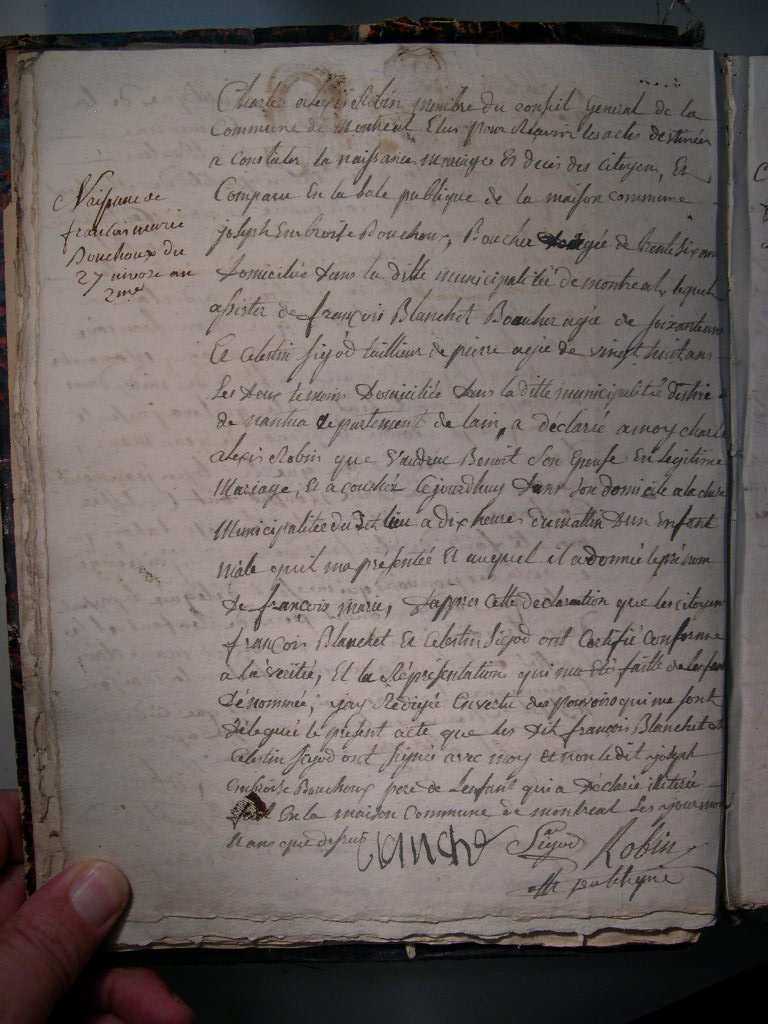 Naissance de
francois marie
Bouchoux du
27 nivose an
2me
Charle alexis Robin membre du conseil General de la
Commune de montreal Elus pour Recevoir les actes destinée
a constater la naissance mariages Et deces des citoyen, Est
Comparu En la sale publique de la maison commune
joseph Embroise Bouchoux, Boucher agée de trente six ans
Domiciliée dans la ditte municipalitée de montreal, lequel
assister de françois Blanchet Boucher agée de soixante
Et Celestin Sigod tallieur de pierre agée de vingt huit ans
Les deux temoins Domiciliée dans la ditte municipalitée district
de nantua departement de lain, a déclarié a moy charle
alexis Robin que Benoit Son Epouse En legitime
Mariage, Et acouchée cejourdhuy dans son domicile
Municipalitée du dit lieu a dix heures du mattin dun Enfant
mâle quil ma présentée Et auquel il a donnée le prénom
De françois marie, dapprès cette declaration que les citoyens
françois Blanchet Et Celestin Sigod ont Certifié conforme
a la veritée, Et la Réprésentation qui ma étée faitte de lenfant
dénommée, jay Rédigée En vertu des pouvoirs qui me sont
Déléguée le présent acte que les dit françois Blanchet et
Celestin Sigod ont signée avec moy et non le dit joseph
embroise Bouchoux pere de lenfant qui a déclarié illitérée
fait En la maison Commune de montreal Les jour mois
Et ans que dessus
Blanche Sigod Robin
off publique